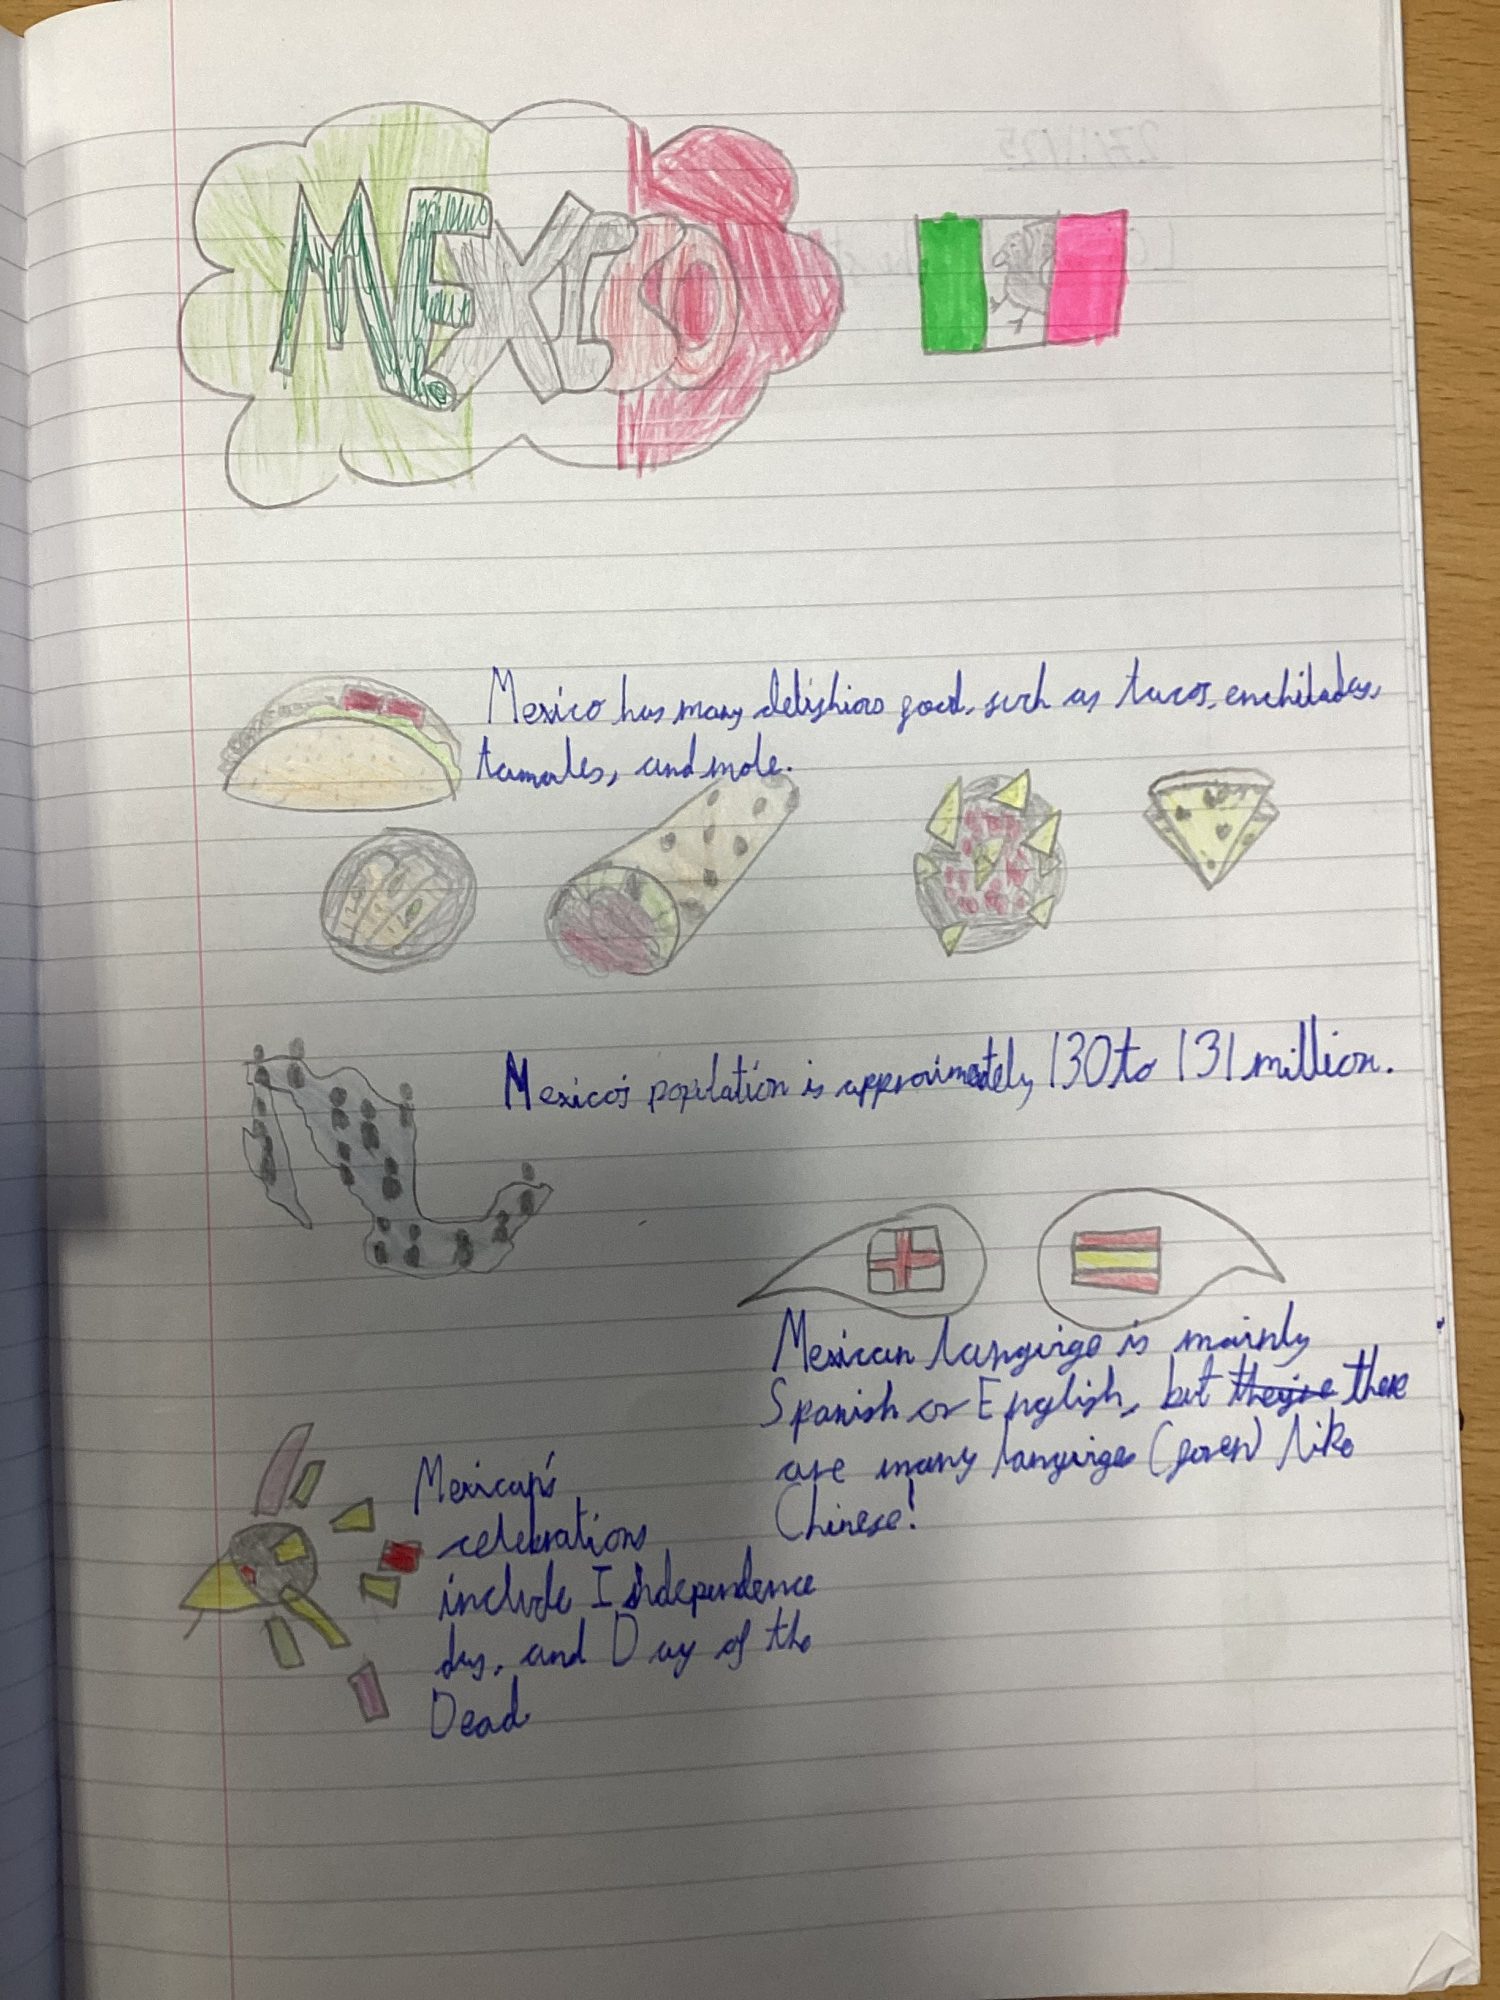 MEXICO
Mexico has many delishios food, such as tacos, enchiladas,
tamales, and mole.
Mexico's population is approximately 130 to 131 million.
Mexican languirge is mainly
Spanish or English, but there
are many languirges (given) like
Chinese!
Mexican's
celebrations
include Independence
day, and Day of the
Dead